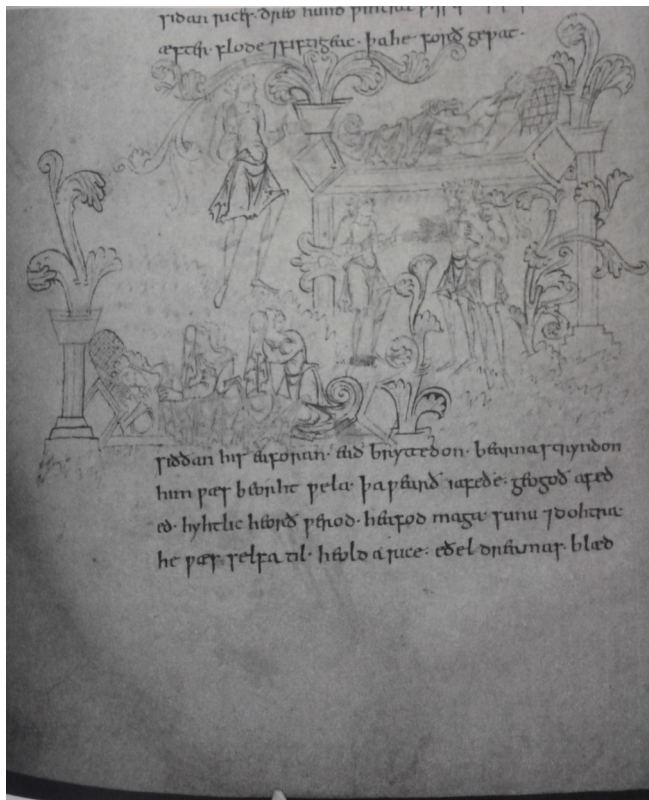 sidan rices · ðreo hund wintra þisses
æfter flode ⁊ fiftig eac · þa he forð gewat ·
siððan his eaforan · ead bryttedon · bearna stryndon
him wæs beorht wela · þa wearð iafeðe · geogoð afed
ed · hyhtlic heorð werod · heafod maga · sunu ⁊ dohtra ·
he wæs selfa til · heold a rice · eðel dreamas · blæd